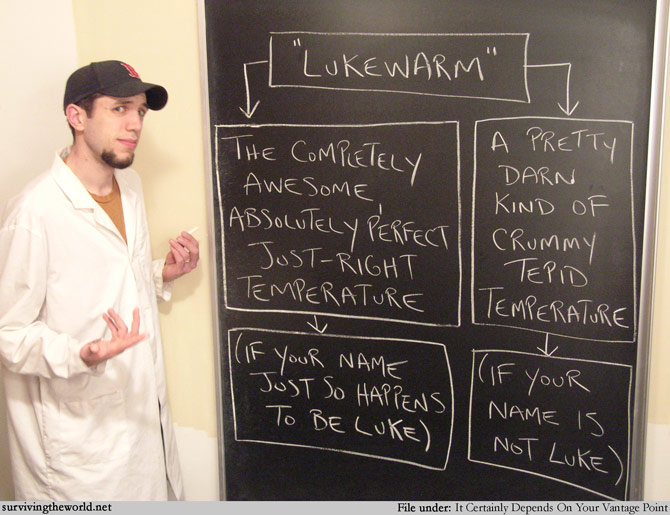 "LUKEWARM"
THE COMPLETELY
AWESOME,
ABSOLUTELY PERFECT
JUST-RIGHT
TEMPERATURE
(IF YOUR NAME
JUST SO HAPPENS
TO BE LUKE)
A PRETTY
DARN
KIND OF
CRUMMY
TEPID
TEMPERATURE
(IF YOUR
NAME IS
NOT LUKE)
survivingtheworld.net
File under: It Certainly Depends On Your Vantage Point